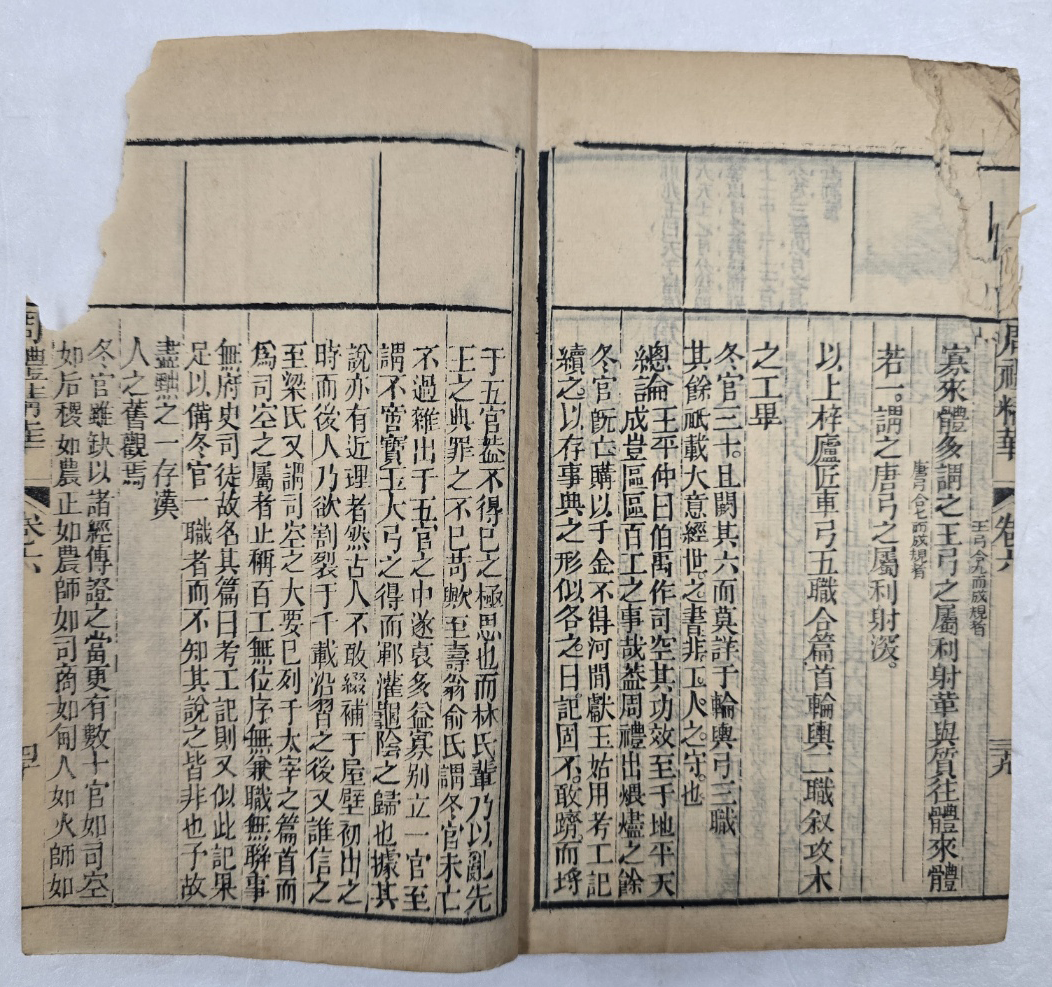 周禮精華
卷六
三十九
寡來體多謂之王弓之屬利射革與質往體來體
王弓合九而成規者
若一。謂之唐弓之屬利射深。
唐弓合七而成規者
以上梓廬匠車弓五職合篇首輪輿二職叙攻木
之工畢
冬官三十。且闕其六而莫詳于輪輿弓三職
其餘祗載大意經世之書非工人之守也
總論王平仲曰伯禹作司空其功效至于地平天
總論成豈區區百工之事哉葢周禮出煨燼之餘
冬官旣亡購以千金不得河間獻王姑用考工記
續之以存事典之形似各之曰記固不敢躋而埓
于五官葢不得已之極思也而林氏輩乃以亂先
王之典罪之不已苛歟至壽翁俞氏謂冬官未亡
不過雜出于五官之中遂裒多益寡别立一官至
謂不啻寶玉大弓之得而鄆灌龜陰之歸也據其
說亦有近理者然古人不敢綴補于屋壁初出之
時而後人乃欲割裂于千載沿習之後又誰信之
至梁氏又謂司空之大要已列于太宰之篇首而
爲司空之屬者止稱百工無位序無兼職無聯事
無府史司徒故名其篇曰考工記則又似此記果
足以備冬官一職者而不知其說之皆非也予故
盡黜之一存漢
人之舊觀焉
冬官雖缺以諸經傳證之當更有數十官如司空
如后稷如農正如農師如司商如甸人如火師如
周禮精華
卷六
四十